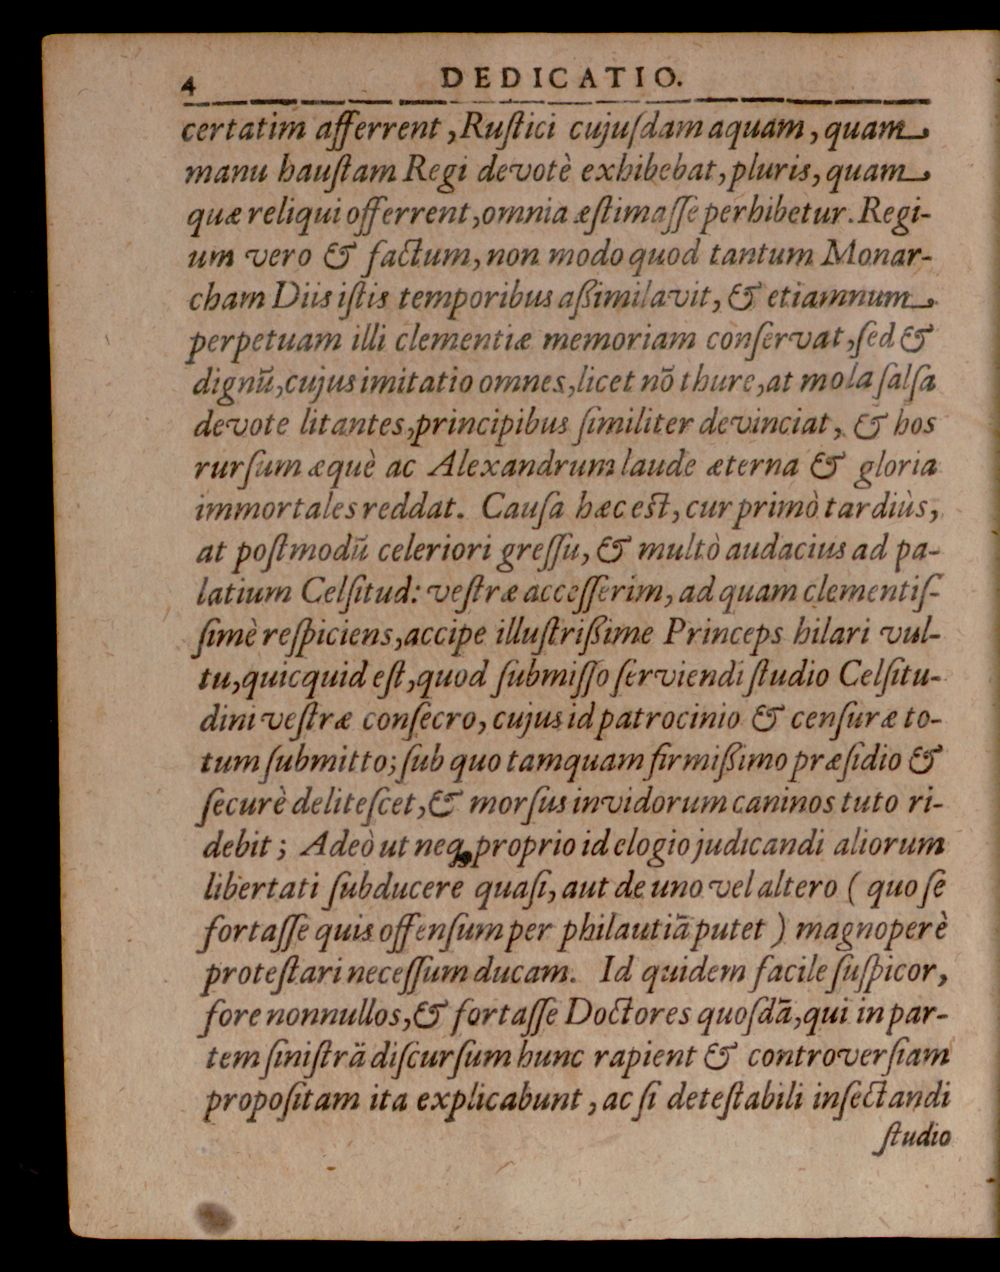 4 DEDICATIO.
certatim afferrent, Ruſtici cujuſdam aquam, quam
manu hauſtam Regi devotè exhibebat, pluris, quam
quæ reliqui offerrent, omnia æſtimaſſe perhibetur. Regi-
um vero & factum, non modo quod tantum Monar-
cham Diis iſtis temporibus aßimilavit, & etiamnum
perpetuam illi clementiæ memoriam conſervat, ſed &
dignũ, cujus imitatio omnes, licet nõ thure, at mola ſalſa
devote litantes, principibus ſimiliter devinciat, & hos
rurſum æquè ac Alexandrum laude æterna & gloria
immortales reddat. Cauſa hæc est, cur primò tardiùs,
at poſtmodũ celeriori greſſu, & multò audacius ad pa-
latium Celſitud: veſtræ acceſſerim, ad quam clementiſ-
ſimè reſpiciens, accipe illuſtrißime Princeps hilari vul-
tu, quicquid eſt, quod ſubmiſſo ſerviendi ſtudio Celſitu-
dini veſtræ conſecro, cujus id patrocinio & cenſuræ to-
tum ſubmitto; ſub quo tamquam firmißimo præſidio &
ſecurè deliteſcet, & morſus invidorum caninos tuto ri-
debit; Adeò ut neq; proprio id elogio judicandi aliorum
libertati ſubducere quaſi, aut de uno vel altero (quo ſe
fortaſſe quis offenſum per philautiã putet) magnoperè
proteſtari neceſſum ducam. Id quidem facile ſuſpicor,
fore nonnullos, & fortaſſe Doctores quoſdã, qui in par-
tem ſiniſtrã diſcurſum hunc rapient & controverſiam
propoſitam ita explicabunt, ac ſi deteſtabili inſectandi
ſtudio